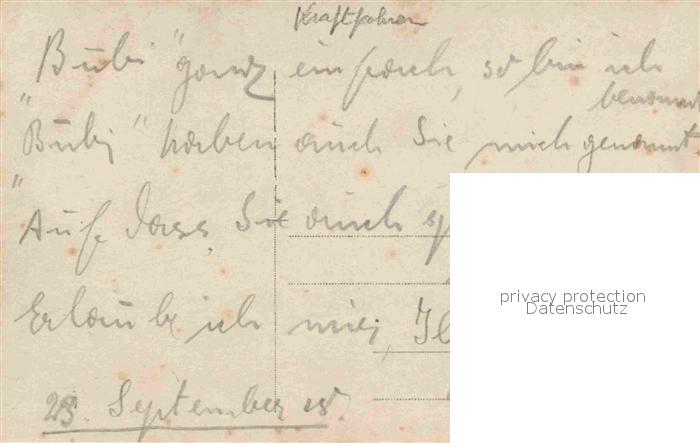 Kraftfahrer
"Bubi" ganz einfach, so bin ich
benannt
"Bubi" haben auch Sie mich genannt.
"Auf dass Sie auch
Erlaube ich mir,
23. September 18.
privacy protection
Datenschutz